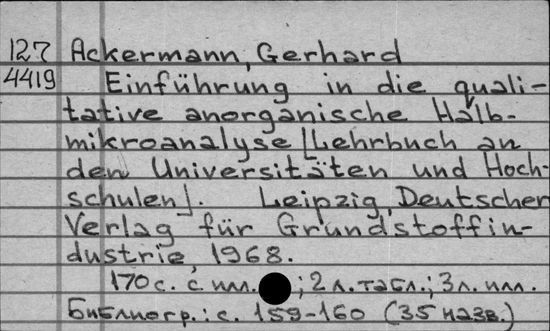 127 Ackermann, Gerhard
4419 Einführung in die quali-
tative anorganische Halb-
mikroanalyse [Lehrbuch an
den Universitäten und Hoch-
schulen]. Leipzig, Deutscher
Verlag für Grundstoffin-
dustrie, 1968.
170 с. с илл.; 2 л. табл.; 3 л. илл.
Библиогр.: с. 159-160 (35 назв.)